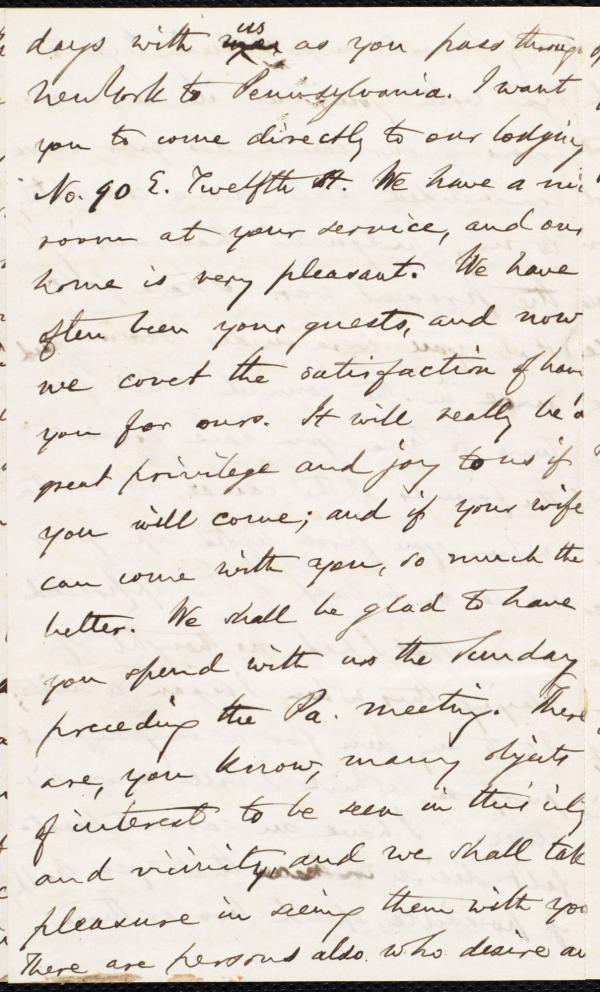 days with us as you pass throug
New York to Pennsylvania. I want
you to come directly to our lodging
No. 90 E. Twelfth St. We have a nic
room at your service, and our
home is very pleasant. We have
often been your guests, and now
we covet the satisfaction of havi
you for ours. It will really be a
great privilege and joy to us if
you will come; and if your wife
can come with you, so much the
better. We shall be glad to have
you spend with us the Sunday
preceding the Pa. meeting. There
are, you know, many objects
of interest to be seen in this city
and vicinity and we shall tak
pleasure in seeing them with you
There are persons also who desire an